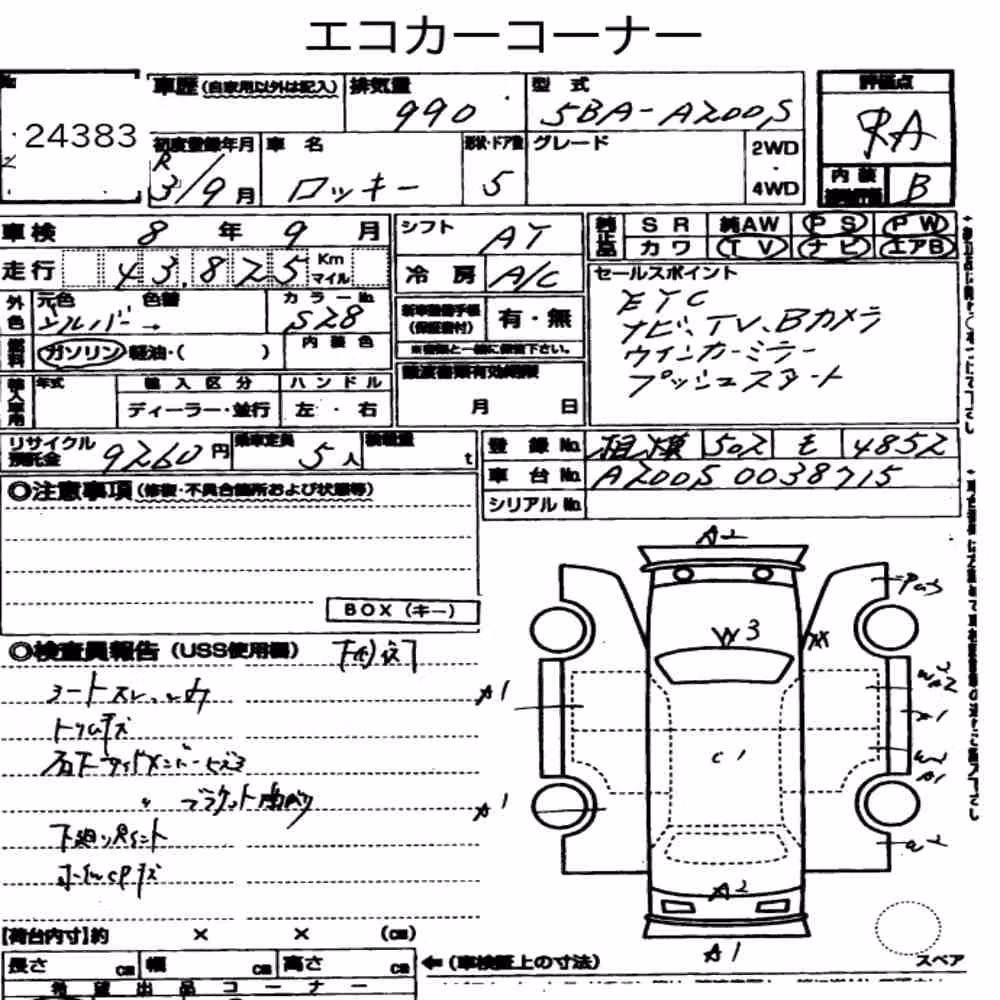 エコカーコーナー
24383
車歴 (自家用以外は記入)
排気量
990
型 式
5BA-A200S
評価点
RA
内装
B
初度登録年月
R
3/9月
車名
ロッキー
形状・ドア数
5
グレード
2WD
・
4WD
車検 8 年 9 月
シフト AT
純正品 SR 純AW PS PW
カワ TV ナビ エアB
走行 43,825 Km マイル
冷房 A/C
セールスポイント
ETC
ナビ、TV、Bカメラ
ウインカーミラー
プッシュスタート
外色 元色 シルバー 色替 → カラーNo. S28
新車整備手帳 (保証書付) 有・無
※書類と一緒に保管下さい。
燃料 ガソリン・軽油・( ) 内装色
譲渡書類有効期限
月 日
輸入車用 年式 輸入区分 ハンドル
ディーラー・並行 左・右
リサイクル預託金 9260円 乗車定員 5人 積載量 t
登録No. 相模 502 モ 4852
車台No. A200S 0038715
シリアルNo.
◎注意事項 (修復・不具合箇所および状態等)
BOX(キー)
◎検査員報告 (USS使用欄)
シートスレ
トリムキズ
右下サイドメンバー
〃 ブラケット曲がり
下廻りペイント
A2
W3
XX
A1
C1
A1
A1
A2
A1
スペア
【荷台内寸】約 × × (cm)
長さ cm 幅 cm 高さ cm
←(車検証上の寸法)
希望出品コーナー